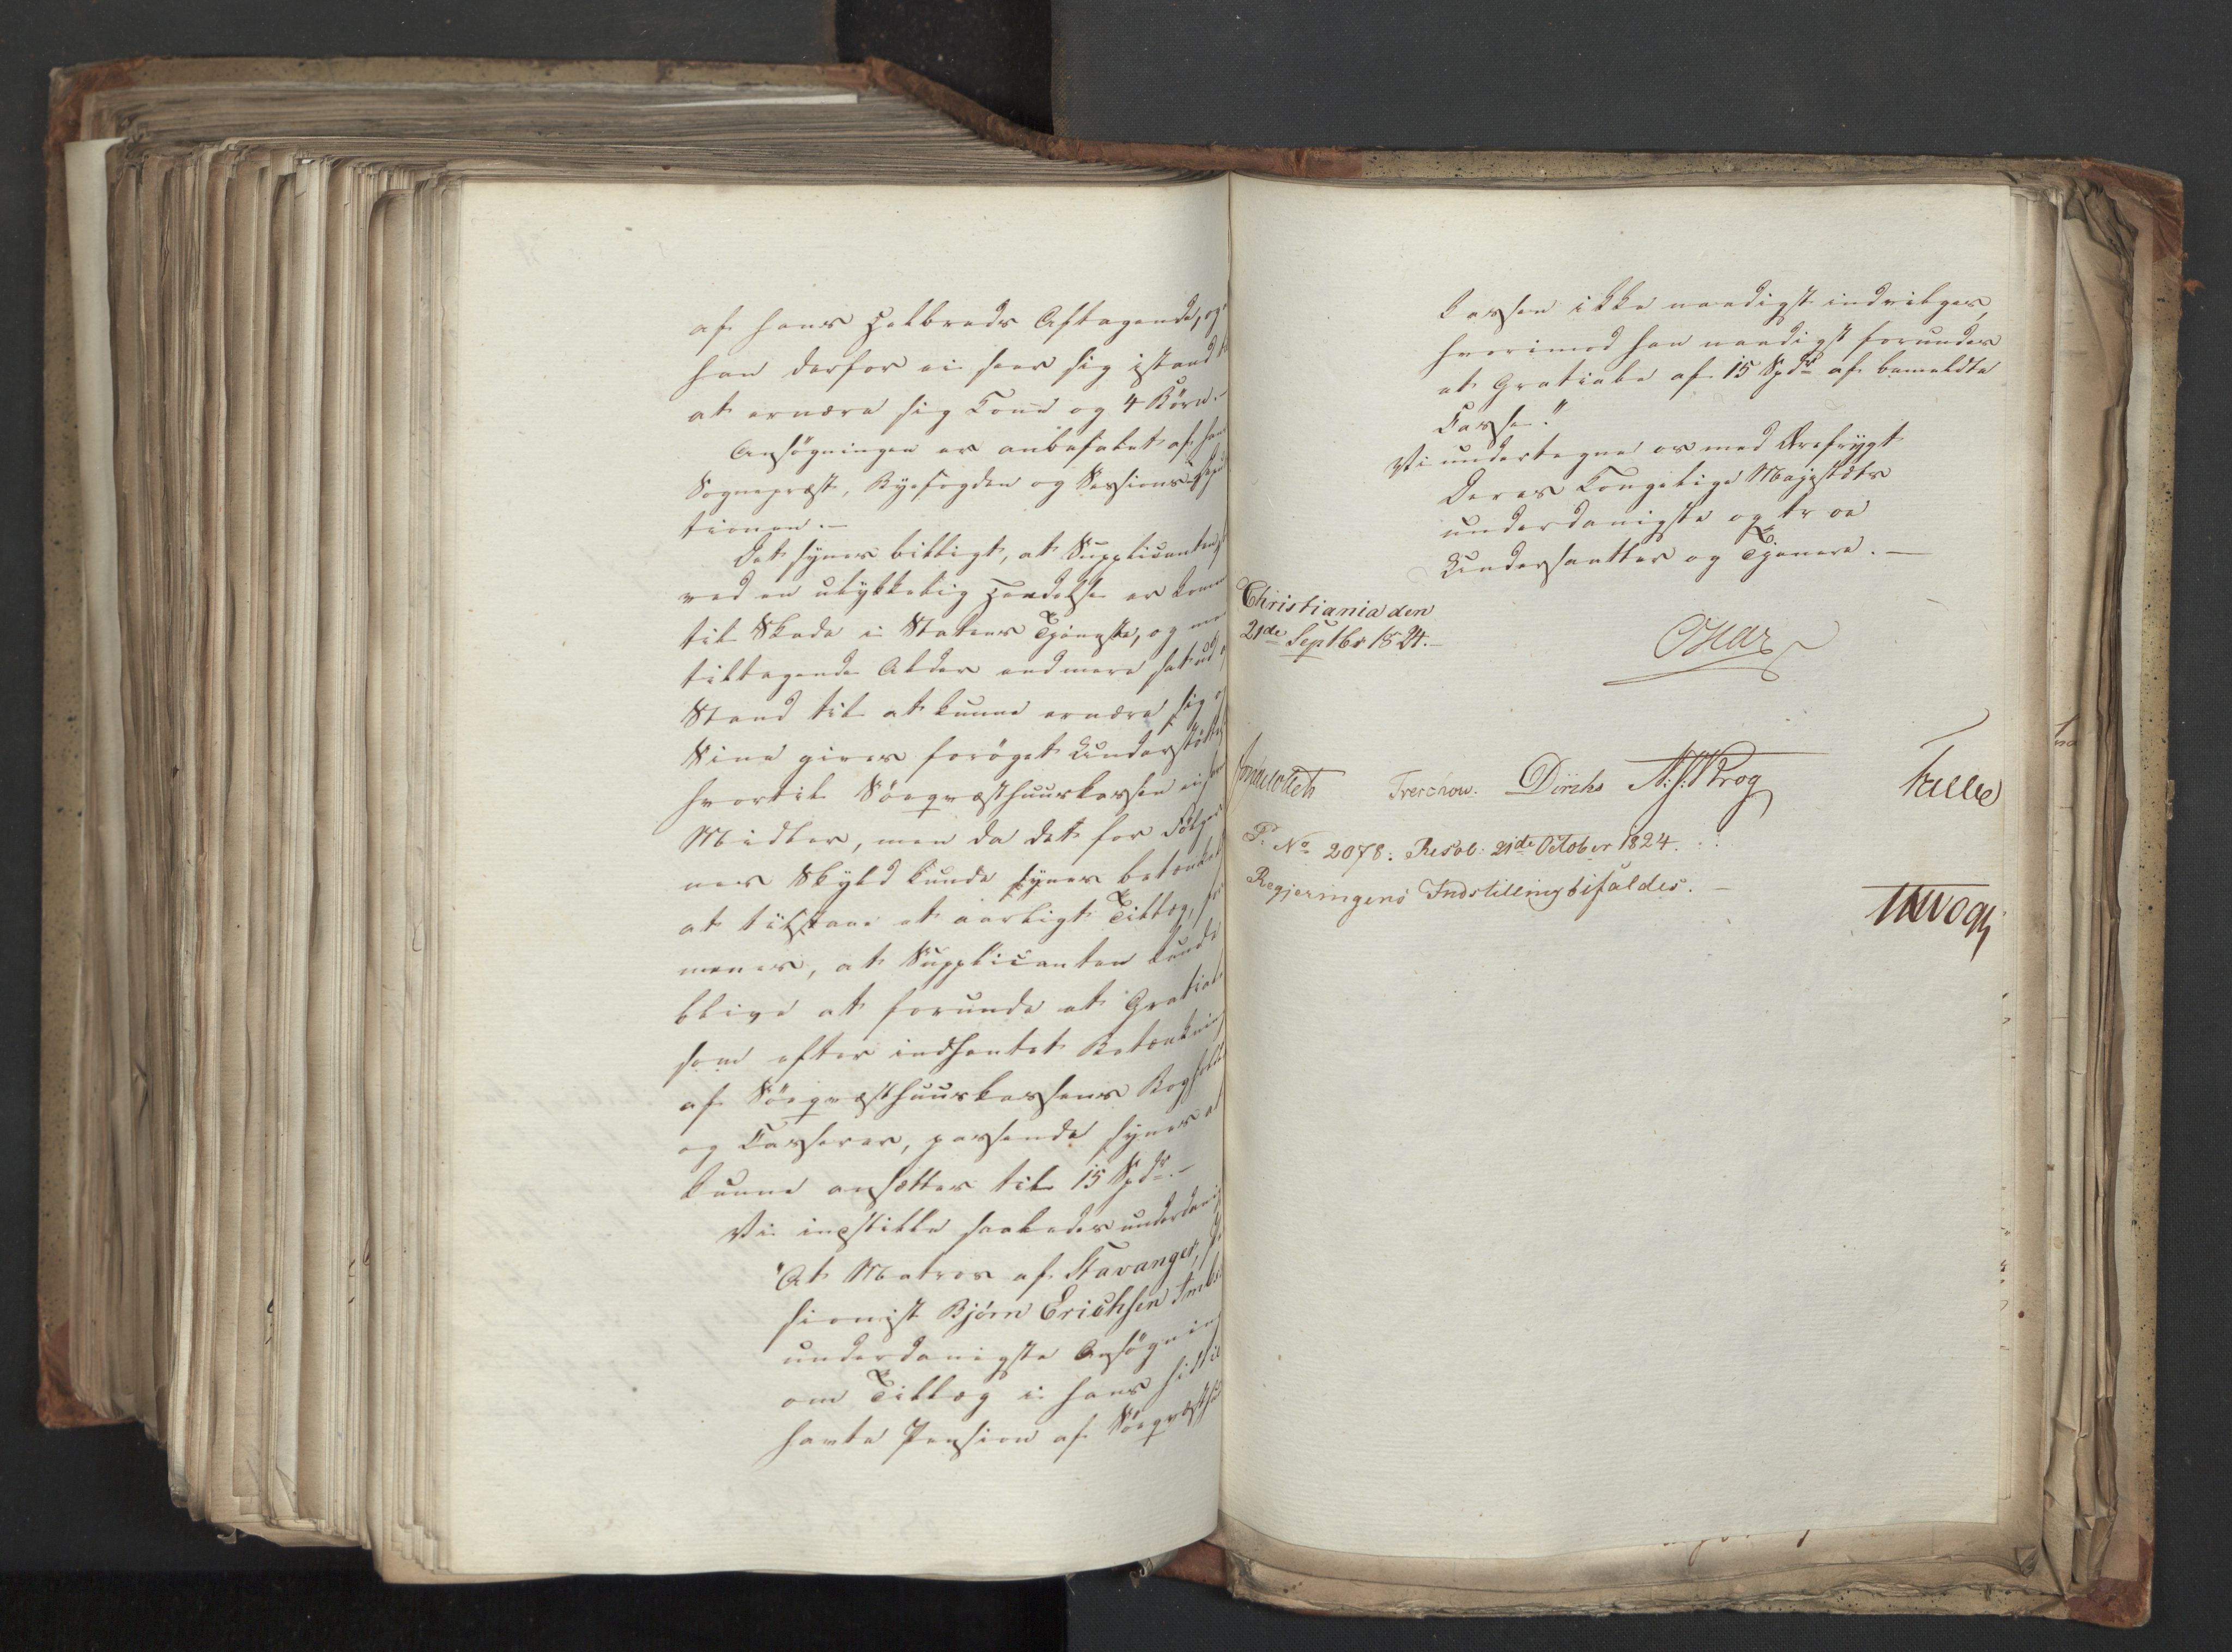 af hans Helbreds Aftagende, og
han derfor ei seer sig istand
at ernære sig Kone og 4 Børn.-
Ansøgningen er anbefalet af hans
Sognepræst, Byefogden og Sessions-
tionen.-
Det synes billigt, at Supplicanten,
ved en ulykkelig Hendelse er kommen
til Skade i Statens Tjeneste, og
tiltagende Alder end mere sat ud
Stand til at kunne ernære sig og
Sine gives forøget Understøttelse
hvortil Søeqvæsthuuskassen
Midler, men da det for Følger
nes Skyld kunde synes betænkeligt
at tilstaae et aarligt Tillæg,
menes, at Supplicanten kunde
blive at forunde et Gratiale
som efter indhentet Betænkning
af Søeqvæsthuuskassens Bogholder
og Casserer, passende synes at
kunne ansættes til 15 Spdr.-
Vi indstille saaledes underdanigst
"At Matros af Stavanger,
sionist Bjørn Erichsen
underdanigste Ansøgning
om Tillæg i hans hidtil
havte Pension af Søeqvæsthuus
Kassen ikke naadigst indvilges,
hvorimod han naadigst forundes
et Gratiale af 15 Spdr af bemeldte
Casse."
Vi undertegne os med Ærefrygt
Deres Kongelige Majestæts
underdanigste og troe
Undersaatter og Tjenere.-
Christiania den
21de Septbr 1824.-
Treschow. Diriks
P. No 2078. Resol: 21de October 1824.
Regjeringens Indstilling bifaldes.-